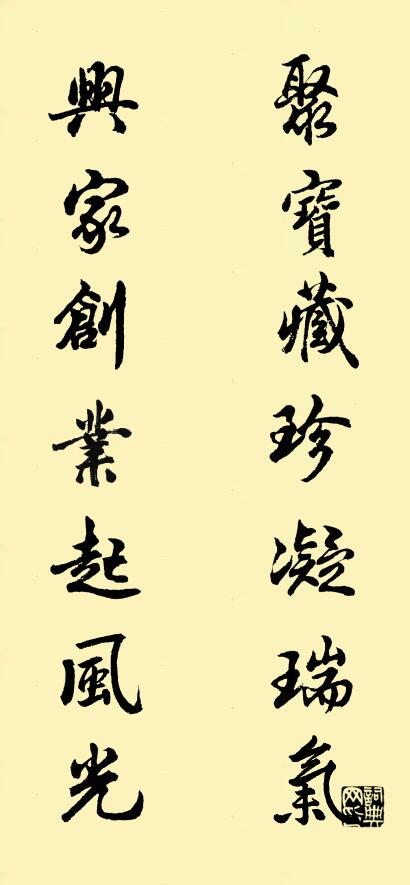 聚寶藏珍凝瑞氣
興家創業起風光